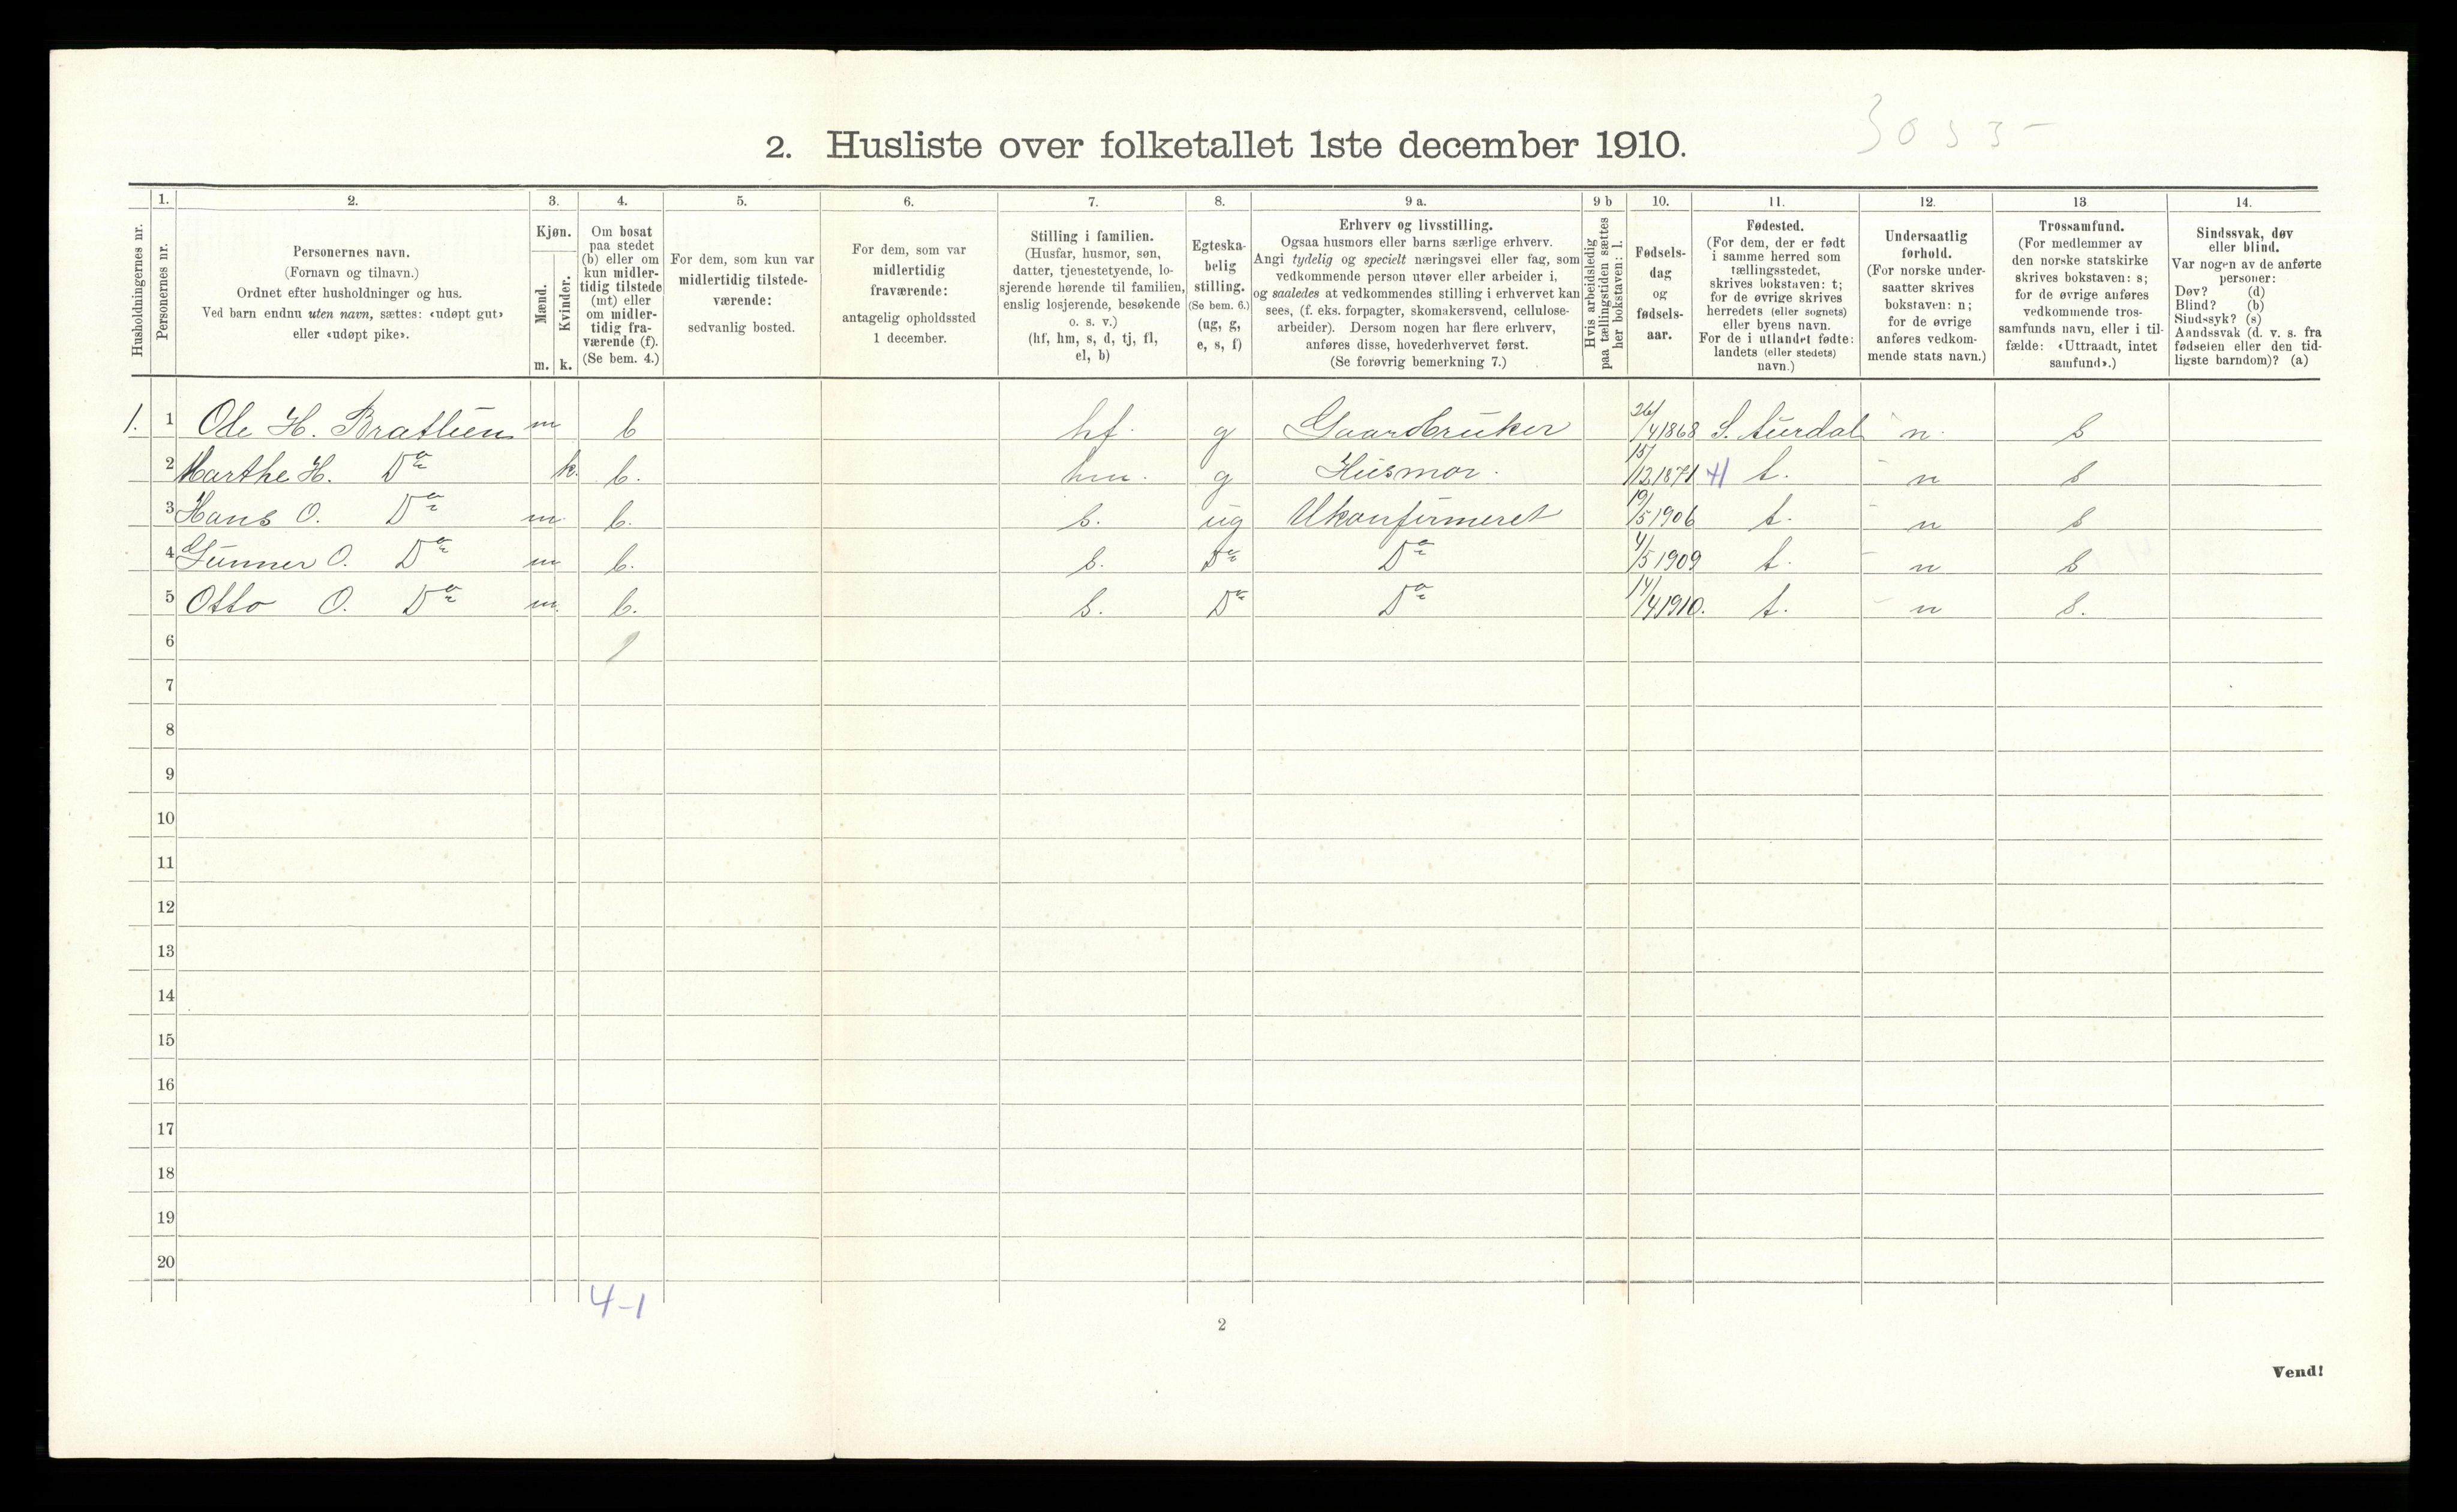 3035
2. Husliste over folketallet 1ste december 1910.
Husholdningernes nr.
1.
Personernes nr.
2.
Personernes navn.
(Fornavn og tilnavn.)
Ordnet efter husholdninger og hus.
Ved barn endnu uten navn, sættes: «udøpt gut»
eller «udøpt pike».
3.
Kjøn.
Mænd.
Kvinder.
m. k.
4.
Om bosat
paa stedet
(b) eller om
kun midler-
tidig tilstede
(mt) eller
om midler-
tidig fra-
værende (f).
(Se bem. 4.)
5.
For dem, som kun var
midlertidig tilstede-
værende:
sedvanlig bosted.
6.
For dem, som var
midlertidig
fraværende:
antagelig opholdssted
1 december.
7.
Stilling i familien.
(Husfar, husmor, søn,
datter, tjenestetyende, lo-
sjerende hørende til familien,
enslig losjerende, besøkende
o. s. v.)
(hf, hm, s, d, tj, fl,
el, b)
8.
Egteska-
belig
stilling.
(Se bem. 6.)
(ug, g,
e, s, f)
9 a.
Erhverv og livsstilling.
Ogsaa husmors eller barns særlige erhverv.
Angi tydelig og specielt næringsvei eller fag, som
vedkommende person utøver eller arbeider i,
og saaledes at vedkommendes stilling i erhvervet kan
sees, (f. eks. forpagter, skomakersvend, cellulose-
arbeider). Dersom nogen har flere erhverv,
anføres disse, hovederhvervet først.
(Se forøvrig bemerkning 7.)
9 b
Hvis arbeidsledig
paa tællingstiden sættes
her bokstaven: l.
10.
Fødsels-
dag
og
fødsels-
aar.
11.
Fødested.
(For dem, der er født
i samme herred som
tællingsstedet,
skrives bokstaven: t;
for de øvrige skrives
herredets (eller sognets)
eller byens navn.
For de i utlandet fødte:
landets (eller stedets)
navn.)
12.
Undersaatlig
forhold.
(For norske under-
saatter skrives
bokstaven: n;
for de øvrige
anføres vedkom-
mende stats navn.)
13
Trossamfund.
(For medlemmer av
den norske statskirke
skrives bokstaven: s;
for de øvrige anføres
vedkommende tros-
samfunds navn, eller i til-
fælde: «Uttraadt, intet
samfund».)
14.
Sindssvak, døv
eller blind.
Var nogen av de anførte
personer:
Døv? (d)
Blind? (b)
Sindssyk? (s)
Aandssvak (d. v. s. fra
fødselen eller den tid-
ligste barndom)? (a)
1. 1 Ole H. Bratlien m b hf. g Gaardbruker 26/4 1868 S. Aurdal n. s
2 Marthe H. Do k. b. hm. g Husmor. 15/12 1871 t. n s
3 Hans O. Do m. b. s. ug Ukonfirmeret 19/5 1906 t. n s
4 Gunner O. Do m b. s. Do Do 4/5 1909 t. n s
5 Otto O. Do m. b. s. Do Do 14/4 1910. t. n s.
6
7
8
9
10
11
12
13
14
15
16
17
18
19
20
4-1
2
Vend!